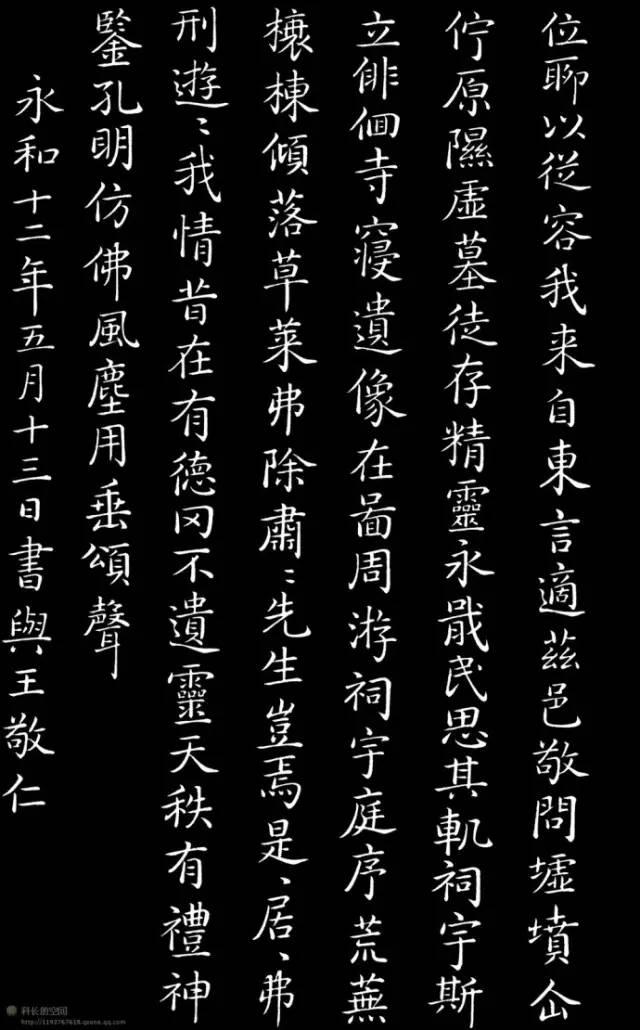 位聊以從容我来自東言適茲邑敬問墟墳仚
佇原隰虛墓徒存精靈永戢民思其軌祠宇斯
立俳佪寺寢遺像在啚周游祠宇庭序荒蕪
榱棟傾落草萊弗除肅〻先生豈焉是、居、弗
刑遊〻我情昔在有德罔不遺靈天秩有禮神
鑒孔明仿佛風塵用垂頌聲
永和十二年五月十三日書與王敬仁
科长的空间
http://1192767618.qzone.qq.com